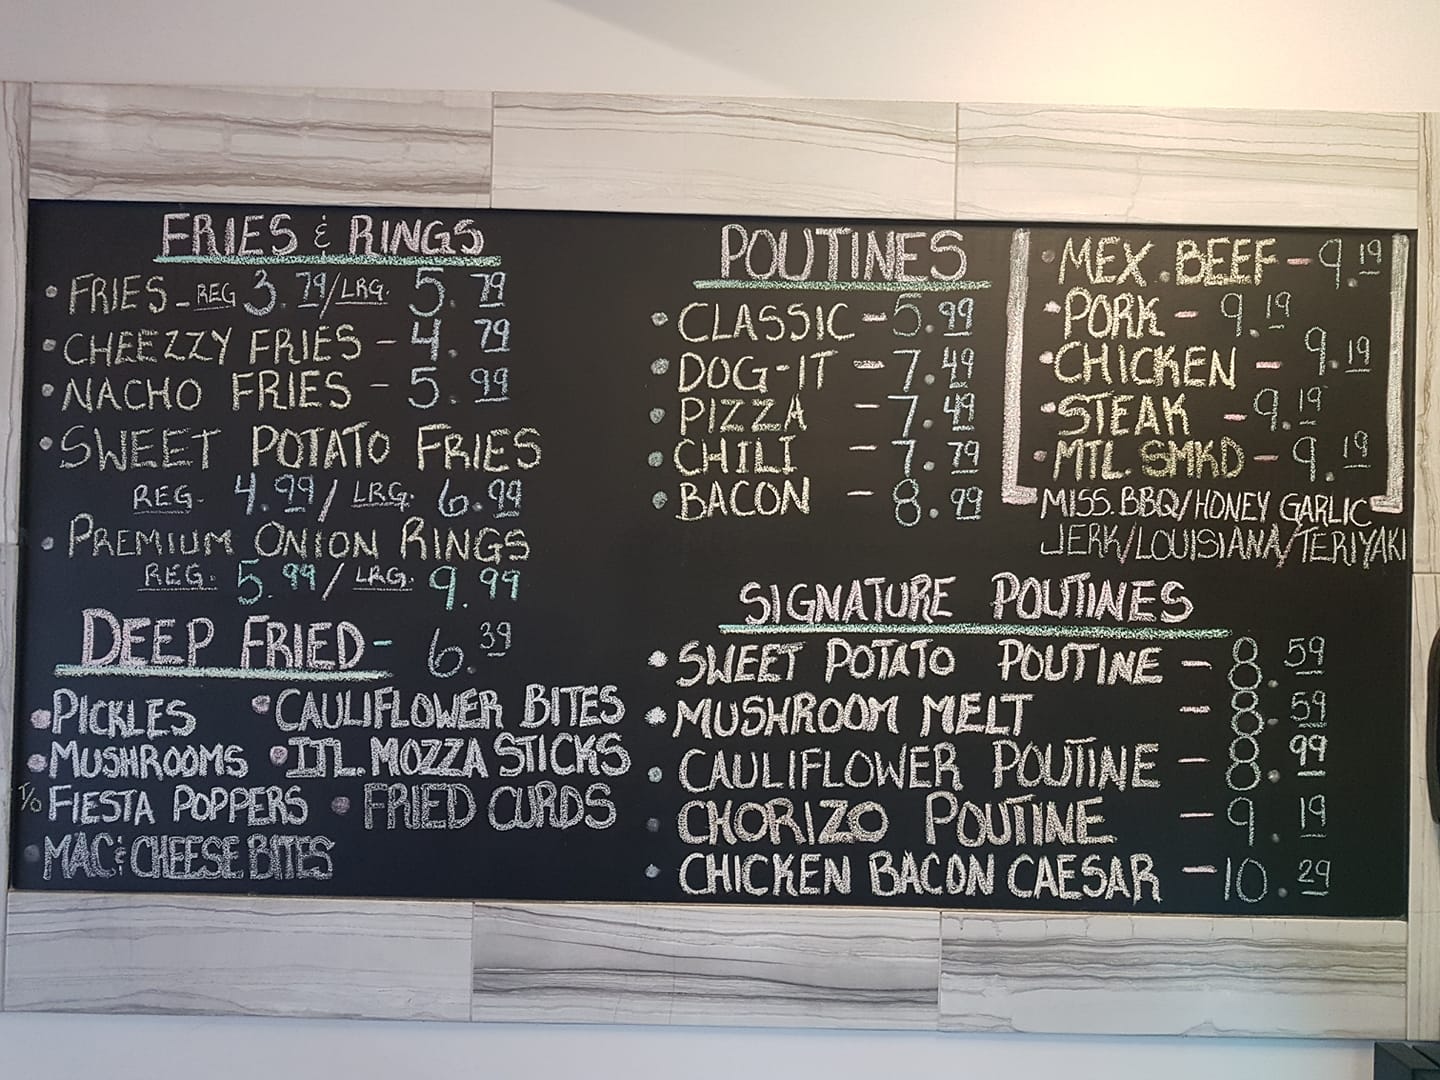 FRIES & RINGS
• FRIES - REG 3.79/LRG. 5.79
• CHEEZZY FRIES - 4.79
• NACHO FRIES - 5.99
• SWEET POTATO FRIES
REG. 4.99 / LRG. 6.99
• PREMIUM ONION RINGS
REG. 5.99 / LRG. 9.99
DEEP FRIED - 6.39
• PICKLES • CAULIFLOWER BITES
• MUSHROOMS • ITL. MOZZA STICKS
T/O FIESTA POPPERS • FRIED CURDS
• MAC & CHEESE BITES
POUTINES
• CLASSIC - 5.99
• DOG-IT - 7.49
• PIZZA - 7.49
• CHILI - 7.79
• BACON - 8.99
• MEX. BEEF - 9.19
• PORK - 9.19
• CHICKEN - 9.19
• STEAK - 9.19
• MTL SMKD - 9.19
MISS. BBQ/HONEY GARLIC
JERK/LOUISIANA/TERIYAKI
SIGNATURE POUTINES
• SWEET POTATO POUTINE - 8.59
• MUSHROOM MELT - 8.59
• CAULIFLOWER POUTINE - 8.99
• CHORIZO POUTINE - 9.19
• CHICKEN BACON CAESAR - 10.29